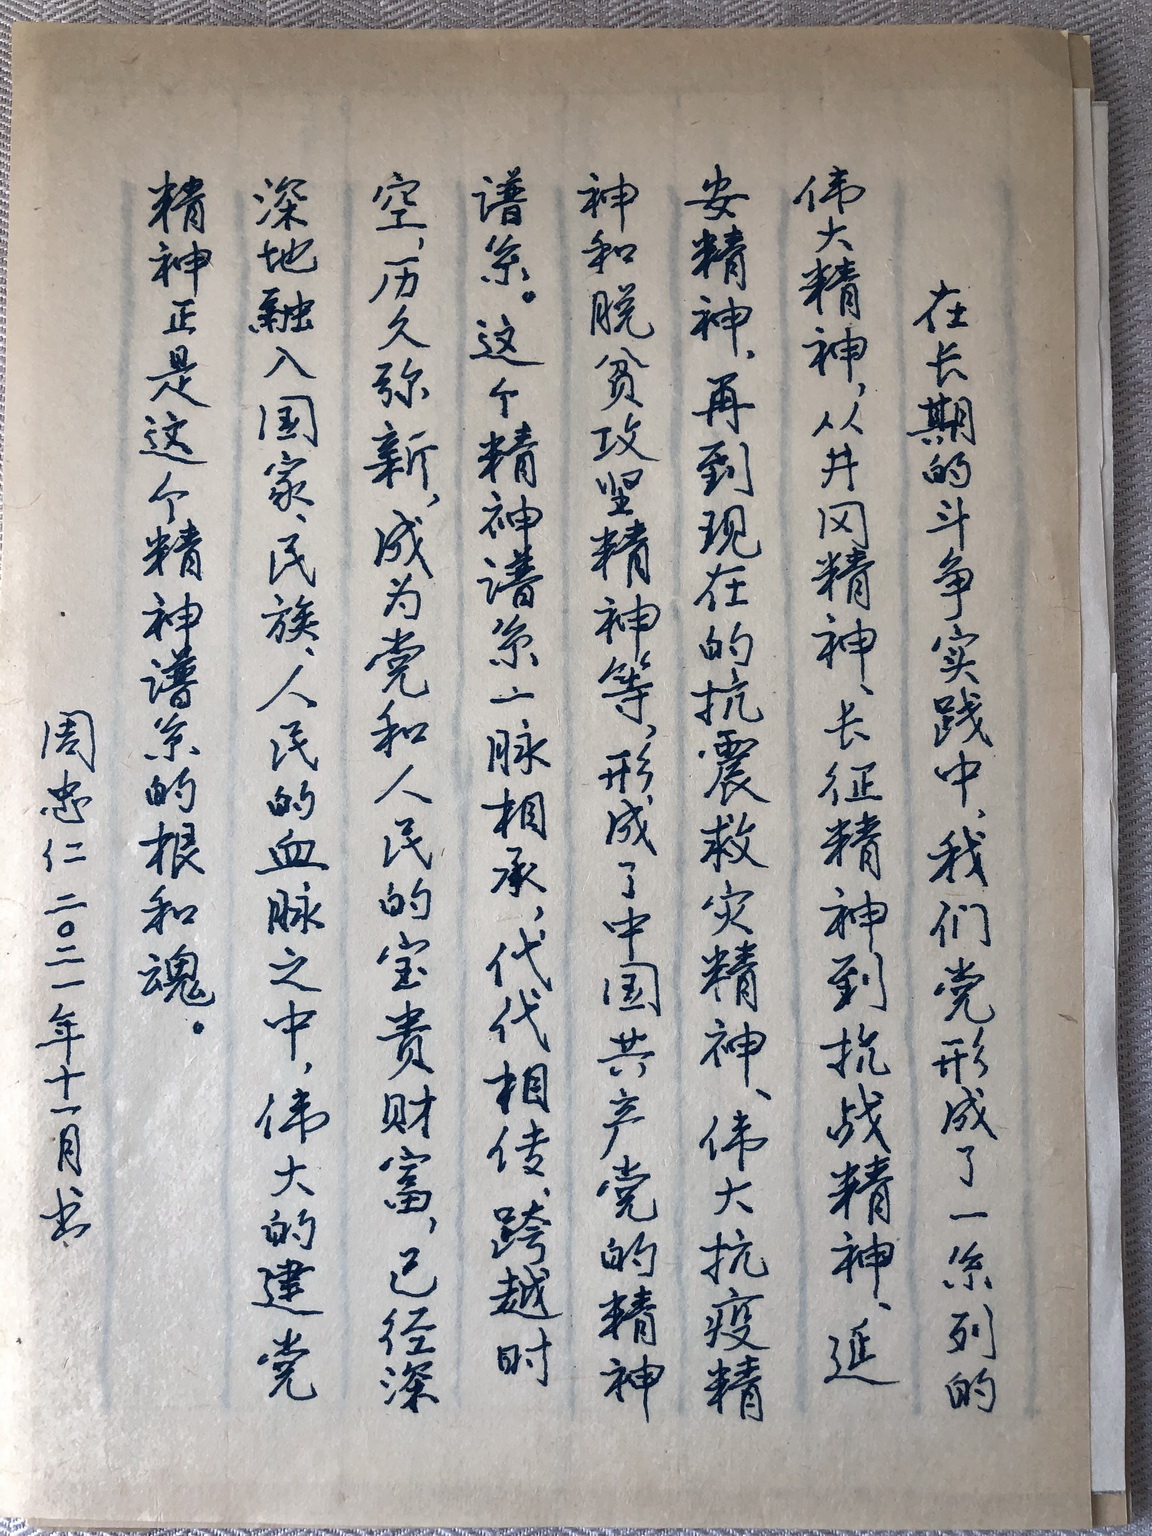 在长期的斗争实践中、我们党形成了一系列的
伟大精神，从井冈精神、长征精神到抗战精神、延
安精神、再到现在的抗震救灾精神、伟大抗疫精
神和脱贫攻坚精神等，形成了中国共产党的精神
谱系。这个精神谱系一脉相承，代代相传、跨越时
空，历久弥新，成为党和人民的宝贵财富，已经深
深地融入国家、民族、人民的血脉之中，伟大的建党
精神正是这个精神谱系的根和魂。
周忠仁二〇二一年十一月书